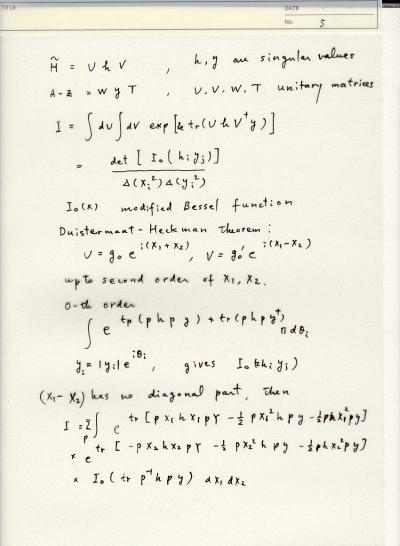 TITLE
DATE
No. 5
H̃ = U h V , h, y are singular values
A-Z = W y T , U, V, W, T unitary matrices
I = ∫ dU ∫ dV exp [k tr(U h V† y)]
= det [ I₀ (h_i y_j) ] / Δ(x_i²) Δ(y_i²)
I₀(x) modified Bessel function
Duistermaat-Heckman Theorem:
U = g₀ e^{i(X₁+X₂)} , V = g₀' e^{i(X₁-X₂)}
up to second order of X₁, X₂.
0-th order
∫ e^{tr(p h p y) + tr(p h p y†)} Π dθ_i
y_i = |y_i| e^{iθ_i} , gives I₀(k h_i y_j)
(X₁-X₂) has no diagonal part, then
I = Σ_p ∫ e^{tr [p X₁ h X₁ p Y - ½ p X₁² h p y - ½ p h X₁² p y]}
× e^{tr [-p X₂ h X₂ p Y - ½ p X₂² h p y - ½ p h X₂² p y]}
× I₀ ( tr p⁻¹ h p y ) dX₁ dX₂